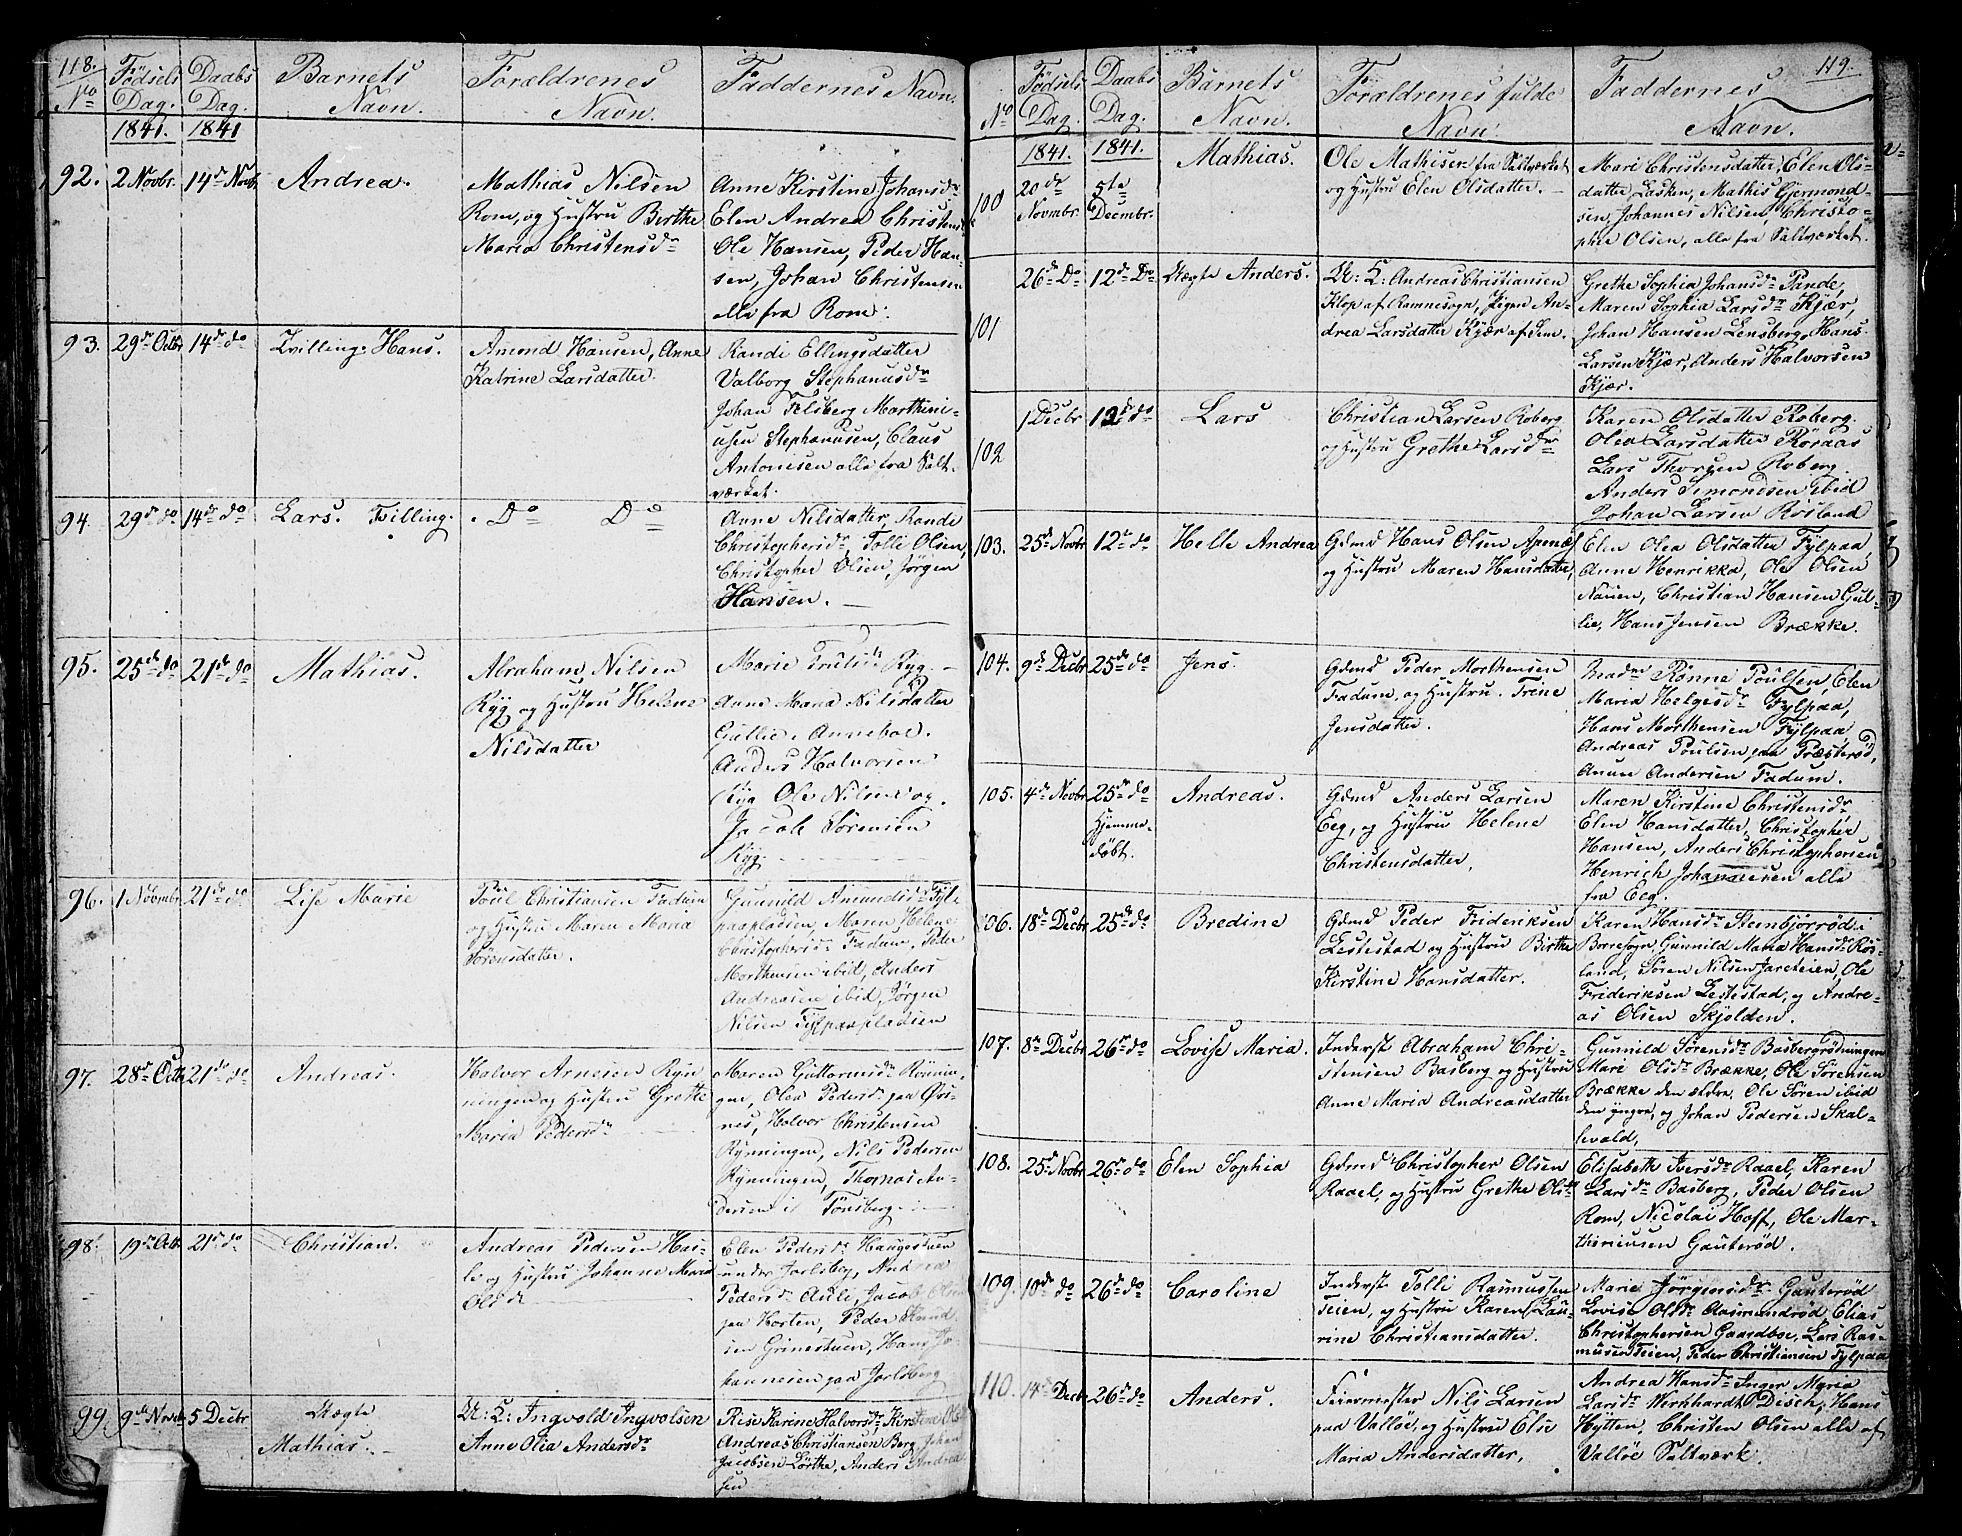 118.
No
Fødsels
Dag.
Daabs
Dag.
Barnets
Navn.
Forældrenes
Navn.
Faddernes Navn.
1841. 1841
92. 2 Novbr. 14de Novbr
Andrea.
Mathias Nilsen
Rom, og Hustru Birthe
Maria Christensdr
Anne Kirstine Johansdr
Elen Andrea Christens
Ole Hansen, Peder Han-
sen, Johan Christensen
alle fra Rom.
93. 29de Octbr 14de do
Tvilling. Hans.
Amond Hansen, Anne
Katrine Larsdatter.
Randi Ellingsdatter
Valborg Stephanusdr
Johan Filsberg Marthini-
usen Stephanusen, Claus
Antonisen alle fra Salt-
værket.
94 29de do 14de do
Lars. Tvilling.
Do Do
Anne Nilsdatter, Rande
Christophersdr, Tolli Olsen,
Christopher Olsen, Jørgen
Hansen.
95. 25de do 21de do
Mathias.
Abraham Nilsen
Ryg og Hustru Helene
Nilsdatter
Marie Trulsdr Ryg.
Anne Maria Nilsdatter
Gullie. Anneboe.
Anders Halvorsen
Ryg Ole Nilsen og
Jacob Sørensen
Ryg.
96. 1 Novmbr 21de do
Lise Marie
Poul Christiansen Fadum
og Hustru Maren Maria
Sørensdatter.
Gunnild Amundsdr Fyl-
paapladsen, Maren Helene
Christophersdr Fadum, Peder
Morthensen ibid, Anders
Andreasen ibid, Jørgen
Nilsen Fylpaapladsen
97. 28de Octb 21de do
Andreas.
Halvor Arnesen Ryn
ningen og Hustru Grethe
Maria Pedersdr
Maren Guttormsdr Rønnin-
gen, Olea Pedersdr paa Øvi-
nes, Halvor Christensen
Rynningen, Nils Pedersen
Rynningen, Thomas An-
dersen i Tønsberg.
98. 19de Octb 21de do
Christian.
Andreas Pedersen Has-
le og Hustru Johanne Maria
Olsdr
Elen Pedersdr Haugestuen
under Jarlsberg, Andrea
Pedersdr Auli, Jacob Olsen
paa Horten, Peder Knud
sen Grinestuen, Hans Jo-
hannesen paa Jarlsberg
99. 9de Novbr 5 Decbr
Uægte
Mathias.
U: F: Ingvold Ingvolsen
Anne Olia Andersdr
Rise Karine Halvorsdr, Kirstina Ols
Andreas Christiansen Berg, Johan
Jacobsen Lørthe, Anders Andrea
sen
119.
No
Fødsels
Dag.
Daabs
Dag.
Barnets
Navn.
Forældrenes fulde
Navn.
Faddernes
Navn.
1841. 1841.
100 20de Novmbr. 5te Decmbr.
Mathias.
Ole Mathisen fra Saltværket
og Hustru Elen Olsdatter.
Mari Christensdatter, Elen Ols-
datter Lasken, Mathis Gjermond-
sen, Johannes Nilsen, Christo-
phe Olsen, alle fra Saltværket.
101 26de Do 12de Do
Uægte Anders.
U: F: Andreas Christiansen
Klop af Ramnesogn, Pigen An-
drea Larsdatter Kjær af Sem.
Grethe Sophia Johansdr Pande,
Maren Sophia Larsdr Kjær,
Johan Hansen Lensberg, Hans
Larsen Kjær, Anders Halvorsen
Kjær.
102 1 Decbr 12de do
Lars
Christian Larsen Roberg
og Hustru Grethe Larsdr
Karen Olsdatter Roberg.
Olea Larsdatter Røraas
Lars Thorsen Roberg.
Anders Simondsen ibid
Johan Larsen Røsland
103. 25de Novbr 12te do
Helle Andrea
Gdmd Hans Olsen Apenæs
og Hustru Maren Hansdatter,
Elen Olea Olsdatter Fylpaa,
Anne Henrikka, Ole Olsen
Nauen, Christian Hansen Gul-
lie, Hans Jensen Brække.
104. 9de Decbr 25de do
Jens.
Gdmd Peder Morthensen
Fadum, og Hustru. Trine
Jensdatter.
Madme Rønne Poulsen, Elen
Maria Helgesdr Fylpaa,
Hans Morthensen Fylpaa,
Andreas Poulsen paa Præsterød,
Anun Andersen Fadum.
105. 4de Novbr 25de do
Hjemme-
døbt.
Andreas.
Gdmd Anders Larsen
Eeg, og Hustru Helene
Christensdatter,
Maren Kirstine Christensdr
Elen Hansdatter, Christopher
Hansen, Anders Christophersen
Henrich Johannesen alle
fra Eeg.
106. 18de Decbr 25de do
Bredine
Gdmd Peder Frideriksen
Lestestad og Hustru Birthe
Kirstine Hansdatter.
Karen Hansdr Steenbjørrød i
Borresogn, Gunnild Maria Hansdr Røs-
land, Søren Nilsen Jareteien, Ole
Frideriksen Lestestad, og Andre-
as Olsen Skjolden.
107. 8de Decbr 26de do
Lovise Maria.
Inderst Abraham Chri-
stensen Basberg og Hustru
Anne Maria Andreasdatter
Gunnild Sørensdr Basbergrødningen
Mari Olsdr Brække, Ole Sørensen
Brække den ældre, Ole Søren ibid
den yngre, og Johan Pedersen Skal-
levald,
108. 25de Novbr 26de do
Elen Sophia
Gdmd Christopher Olsen
Raael, og Hustru Grethe Olsdr
Elisabeth Iversdr Raael, Karen
Larsdr Basberg, Peder Olsen
Rom, Nicolai Hoff, Ole Mar-
theniusen Gauterød.
109. 10de do 26de do
Caroline
Inderst Tolli Rasmussen
Teien, og Hustru Karen Lau-
rine Christiansdatter.
Marie Jørgensdr Gauterød
Lovise Olsdr Aasmundrød, Elias
Christophersen Gaasdboe, Lars Ras-
musen Teien, Peder Christiansen Fylpaa
110. 14de Decbr 26de do
Anders.
Feiermester Nils Larsen
paa Valløe, og Hustru Else
Maria Andersdatter,
Andrea Hansdr Inger Maria
Larsdr Wernhardt Disch, Hans
Hytten, Christen Olsen alle af
Valløe Saltværk.